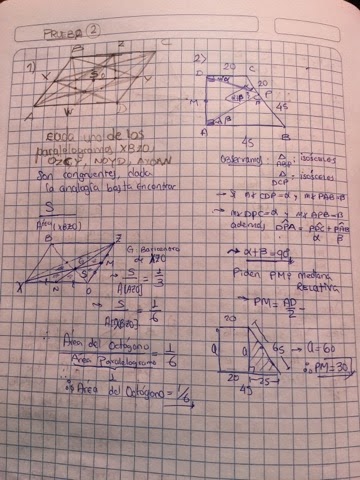 PRUEBA ②
1)
B
Z
C
X
Y
S
O
A
W
D
Cada uno de los
paralelogramos XBZO,
OZCY, NOYD, AXOW
Son congruentes, dada
la analogía basta encontrar
S
Área(XBZO)
B
Z
G
M
S
X
N
O
G Baricentro
de XZO
→ S/A(XZO) = 1/3
→ S/A(XBZO) = 1/6
Área del Octógono / Área Paralelogramo = 1/6
1
∴ Área del Octógono = 1/6
2)
20
D
C
20
P
45
M
A
B
45
Observamos: APB: isósceles
DCP: isósceles
→ Si m∢CDP=α y m∢PAB=β
→ m∢DPC=α y m∢APB=β
además DPA = PDC + PAB
α β
→ α+β=90
Piden PM: mediana
Relativa
→ PM = AD/2
20
a
a
65
20
25
45
→ a=60
∴ PM=30